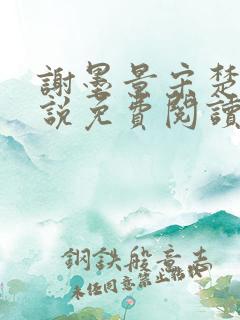 謝墨景宋楚
說免費閱讀
鋼鉄般意志
未經同意禁止轉載